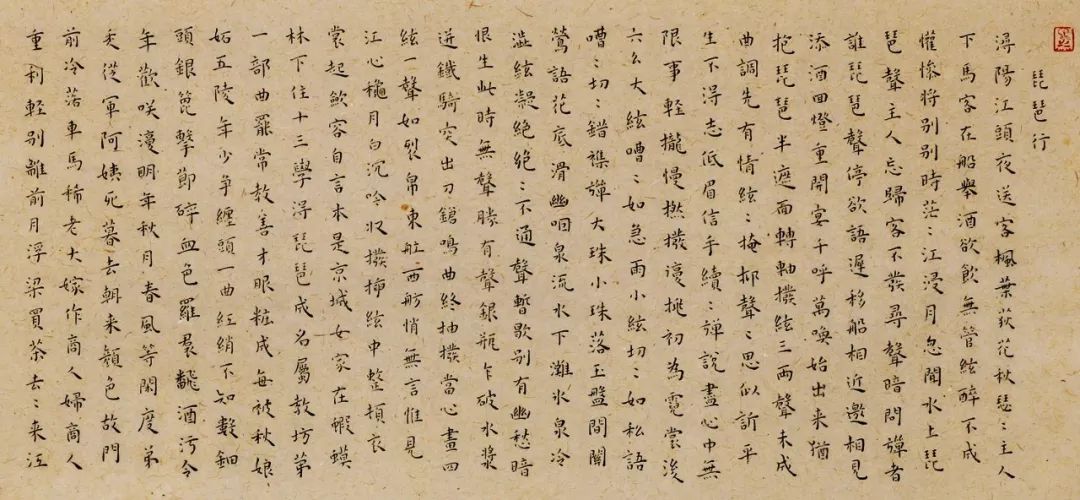 琵琶行
潯陽江頭夜送客楓葉荻花秋瑟〻主人
下馬客在船舉酒欲飲無管絃醉不成
懽慘将别别時茫〻江浸月忽聞水上琵
琶聲主人忘歸客不發尋聲暗問彈者
誰琵琶聲停欲語遲移船相近邀相見
添酒回燈重開宴千呼萬喚始出来猶
抱琵琶半遮面轉軸撥絃三兩聲未成
曲調先有情絃〻掩抑聲〻思似訴平
生不得志低眉信手續〻彈說盡心中無
限事輕攏慢撚撥復挑初為霓裳後
六幺大絃嘈〻如急雨小絃切〻如私語
嘈〻切〻錯襍彈大珠小珠落玉盤間關
鶯語花底滑幽咽泉流水下灘水泉冷
澁絃凝絶絶〻不通聲暫歇别有幽愁暗
恨生此時無聲勝有聲銀瓶乍破水漿
迸鐵騎突出刀鎗鳴曲終抽撥當心畫四
絃一聲如裂帛東舡西舫悄無言惟見
江心秋月白沉吟収撥插絃中整頓衣
裳起斂容自言本是京城女家在蝦蟆
林下住十三學得琵琶成名屬教坊第
一部曲罷常教善才服粧成每被秋娘
妬五陵年少争纏頭一曲紅綃不知數鈿
頭銀篦擊節碎血色羅裙飜酒污今
年歡咲復明年秋月春風等閑度弟
走從軍阿姨死暮去朝来顏色故門
前冷落車馬稀老大嫁作商人婦商人
重利輕别離前月浮梁買茶去〻来江